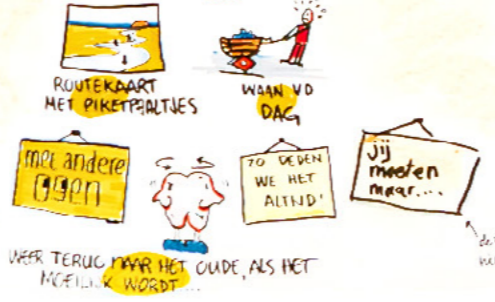 ROUTEKAART
MET PIKETPAALTJES
WAAN VD
DAG
met andere
ogen
ZO DEDEN
WE HET
ALTIJD!
jij
moeten
maar....
WEER TERUG NAAR HET OUDE, ALS HET
MOEILIJK WORDT...